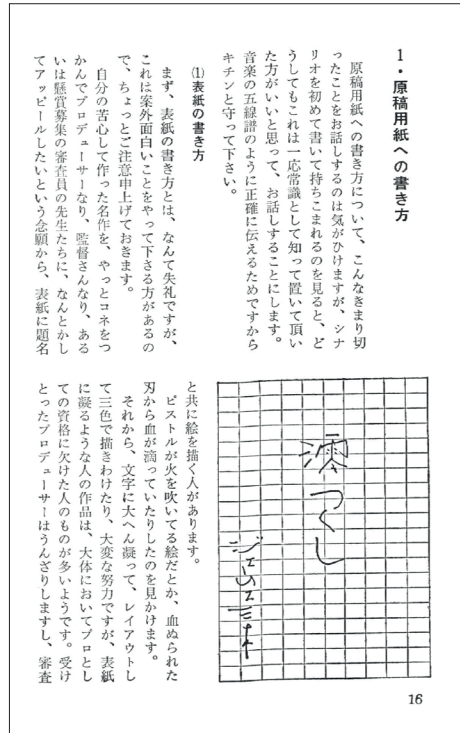 1・原稿用紙への書き方
原稿用紙への書き方について、こんなきまり切
ったことをお話しするのは気がひけますが、シナ
リオを初めて書いて持ちこまれるのを見ると、ど
うしてもこれは一応常識として知って置いて頂い
た方がいいと思って、お話しすることにします。
音楽の五線譜のように正確に伝えるためですから
キチンと守って下さい。
⑴表紙の書き方
まず、表紙の書き方とは、なんて失礼ですが、
これは案外面白いことをやって下さる方があるの
で、ちょっとご注意申上げておきます。
自分の苦心して作った名作を、やっとコネをつ
かんでプロデューサーなり、監督さんなり、ある
いは懸賞募集の審査員の先生たちに、なんとかし
てアッピールしたいという念願から、表紙に題名
澪つくし
と共に絵を描く人があります。
ピストルが火を吹いてる絵だとか、血ぬられた
刃から血が滴っていたりしたのを見かけます。
それから、文字に大へん凝って、レイアウトし
て三色で描きわけたり、大変な努力ですが、表紙
に凝るような人の作品は、大体においてプロとし
ての資格に欠けた人のものが多いようです。受け
とったプロデューサーはうんざりしますし、審査
16